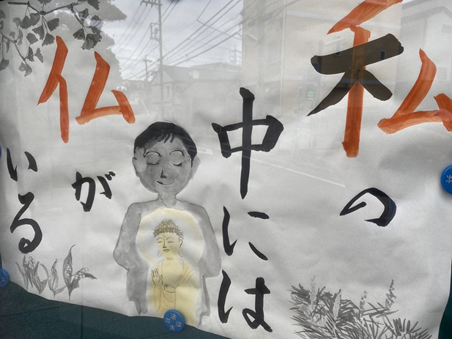 私の
中には
仏が
いる